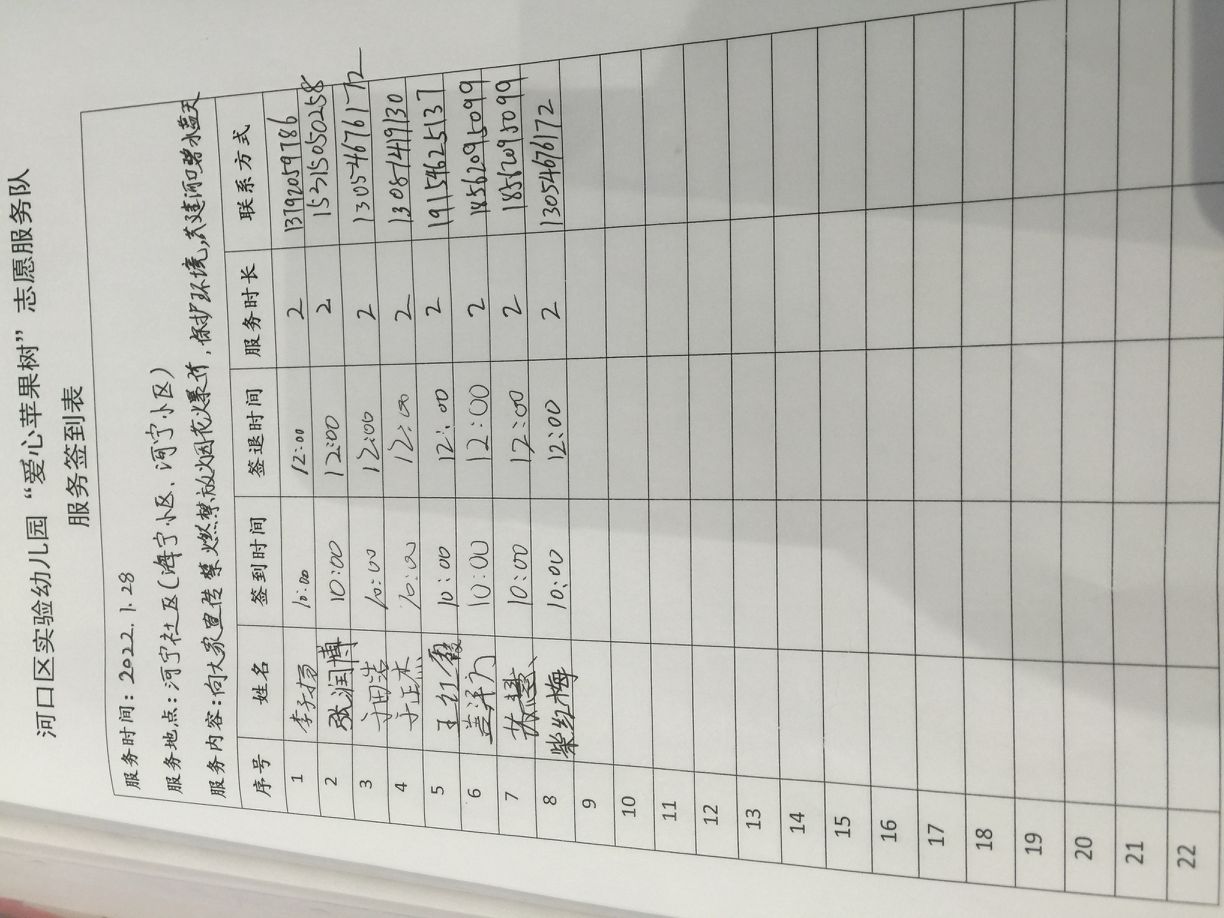 河口区实验幼儿园“爱心苹果树”志愿服务队
服务签到表
服务时间：2022.1.28
服务地点：河宁社区(海宁小区、河宁小区)
服务内容：向大家宣传禁燃禁放烟花爆竹，保护环境，共建河口碧水蓝天
序号 姓名 签到时间 签退时间 服务时长 联系方式
1 李子扬 10:00 12:00 2 13792059786
2 张润博 10:00 12:00 2 15315050258
3 于田浩 10:00 12:00 2 13054676172
4 于正杰 10:00 12:00 2
5 王红霞 10:00 12:00 2 19154625137
6 10:00 12:00 2 18562095099
7 10:00 12:00 2 18562095099
8 柴红梅 10:00 12:00 2 13054676172
9
10
11
12
13
14
15
16
17
18
19
20
21
22